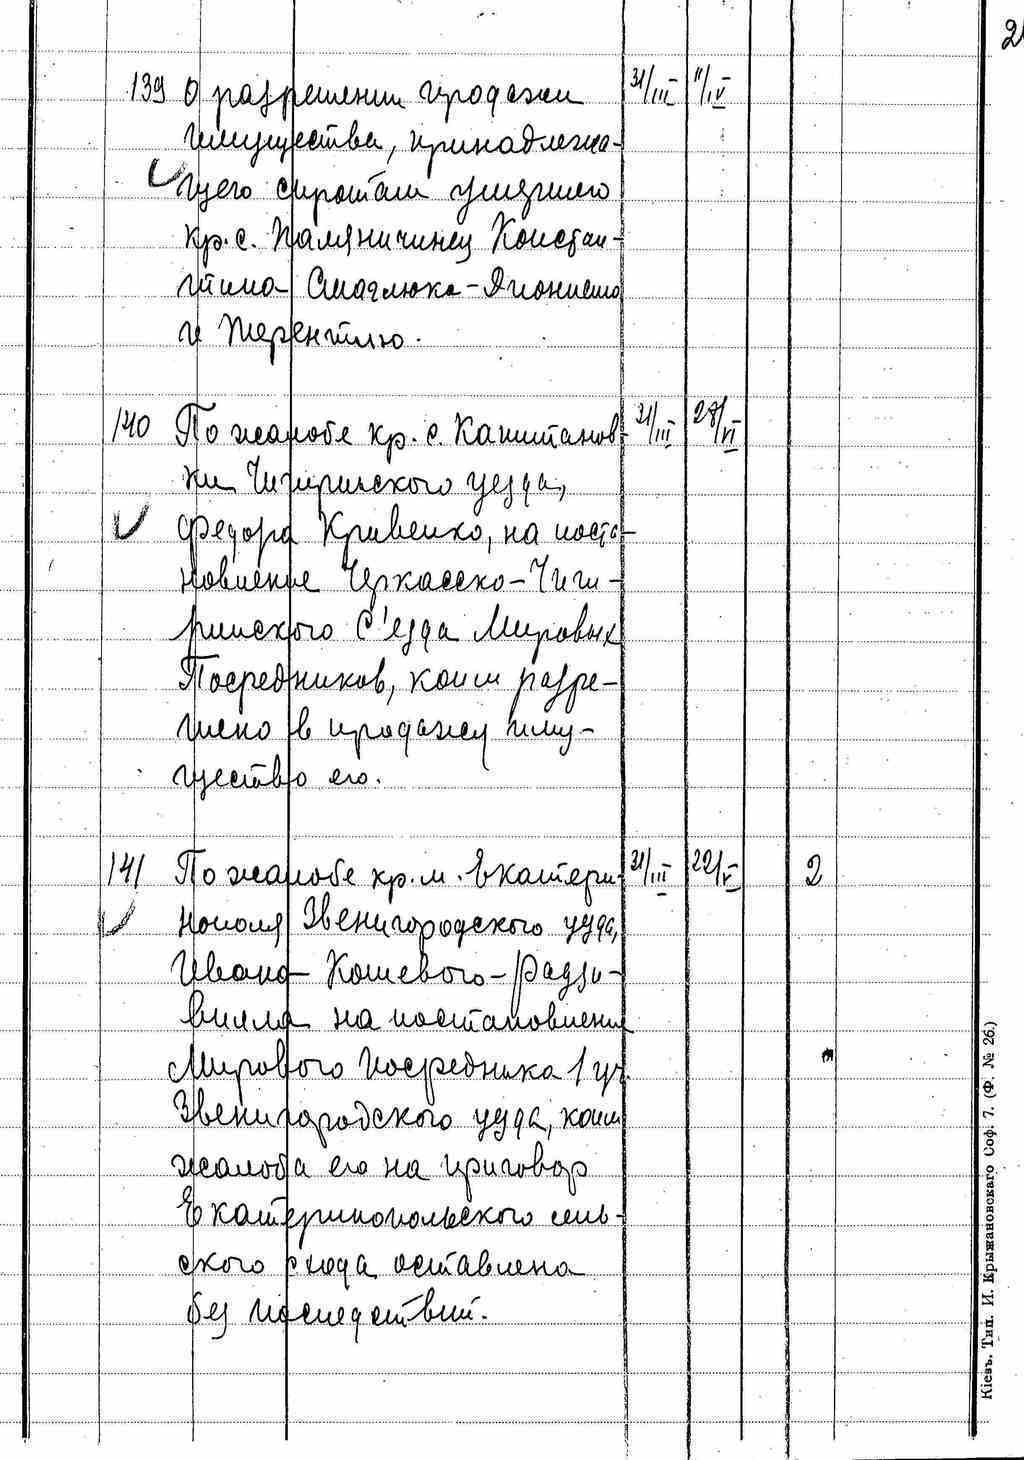 2
139 О разрешении продажи 31/III 11/IV
имущества, принадлежа-
щего сиротам умершего
кр. с. Паляничинец Констан-
тина Смаглюка - Дионисию
и Терентию.
140 По жалобе кр. с. Капитанов- 31/III 28/VI
ки Чигиринского уезда,
Федора Кривенко, на поста-
новление Черкасско-Чиги-
ринского С'езда Мировых
Посредников, коим разре-
шено в продажу иму-
щество его.
141 По жалобе кр. м. Екатери- 31/III 22/V 2
нополя Звенигородского уезда,
Ивана Кошевого-Радзи-
вилла на постановление
Мирового Посредника 1 уч.
Звенигородского уезда, коим
жалоба его на приговор
Екатеринопольского сель-
ского схода оставлена
без последствий.
Кіевъ. Тип. И. Крыжановскаго Соф. 7. (Ф. № 26.)